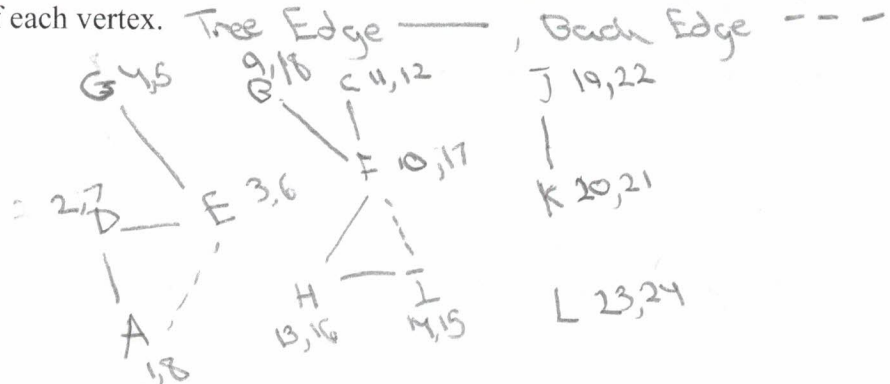 f each vertex. Tree Edge ——— , Back Edge - - -
G 4,5 B 9,18 C 11,12 J 19,22
D 2,7 E 3,6 F 10,17 K 20,21
A 1,8 H 13,16 I 14,15 L 23,24